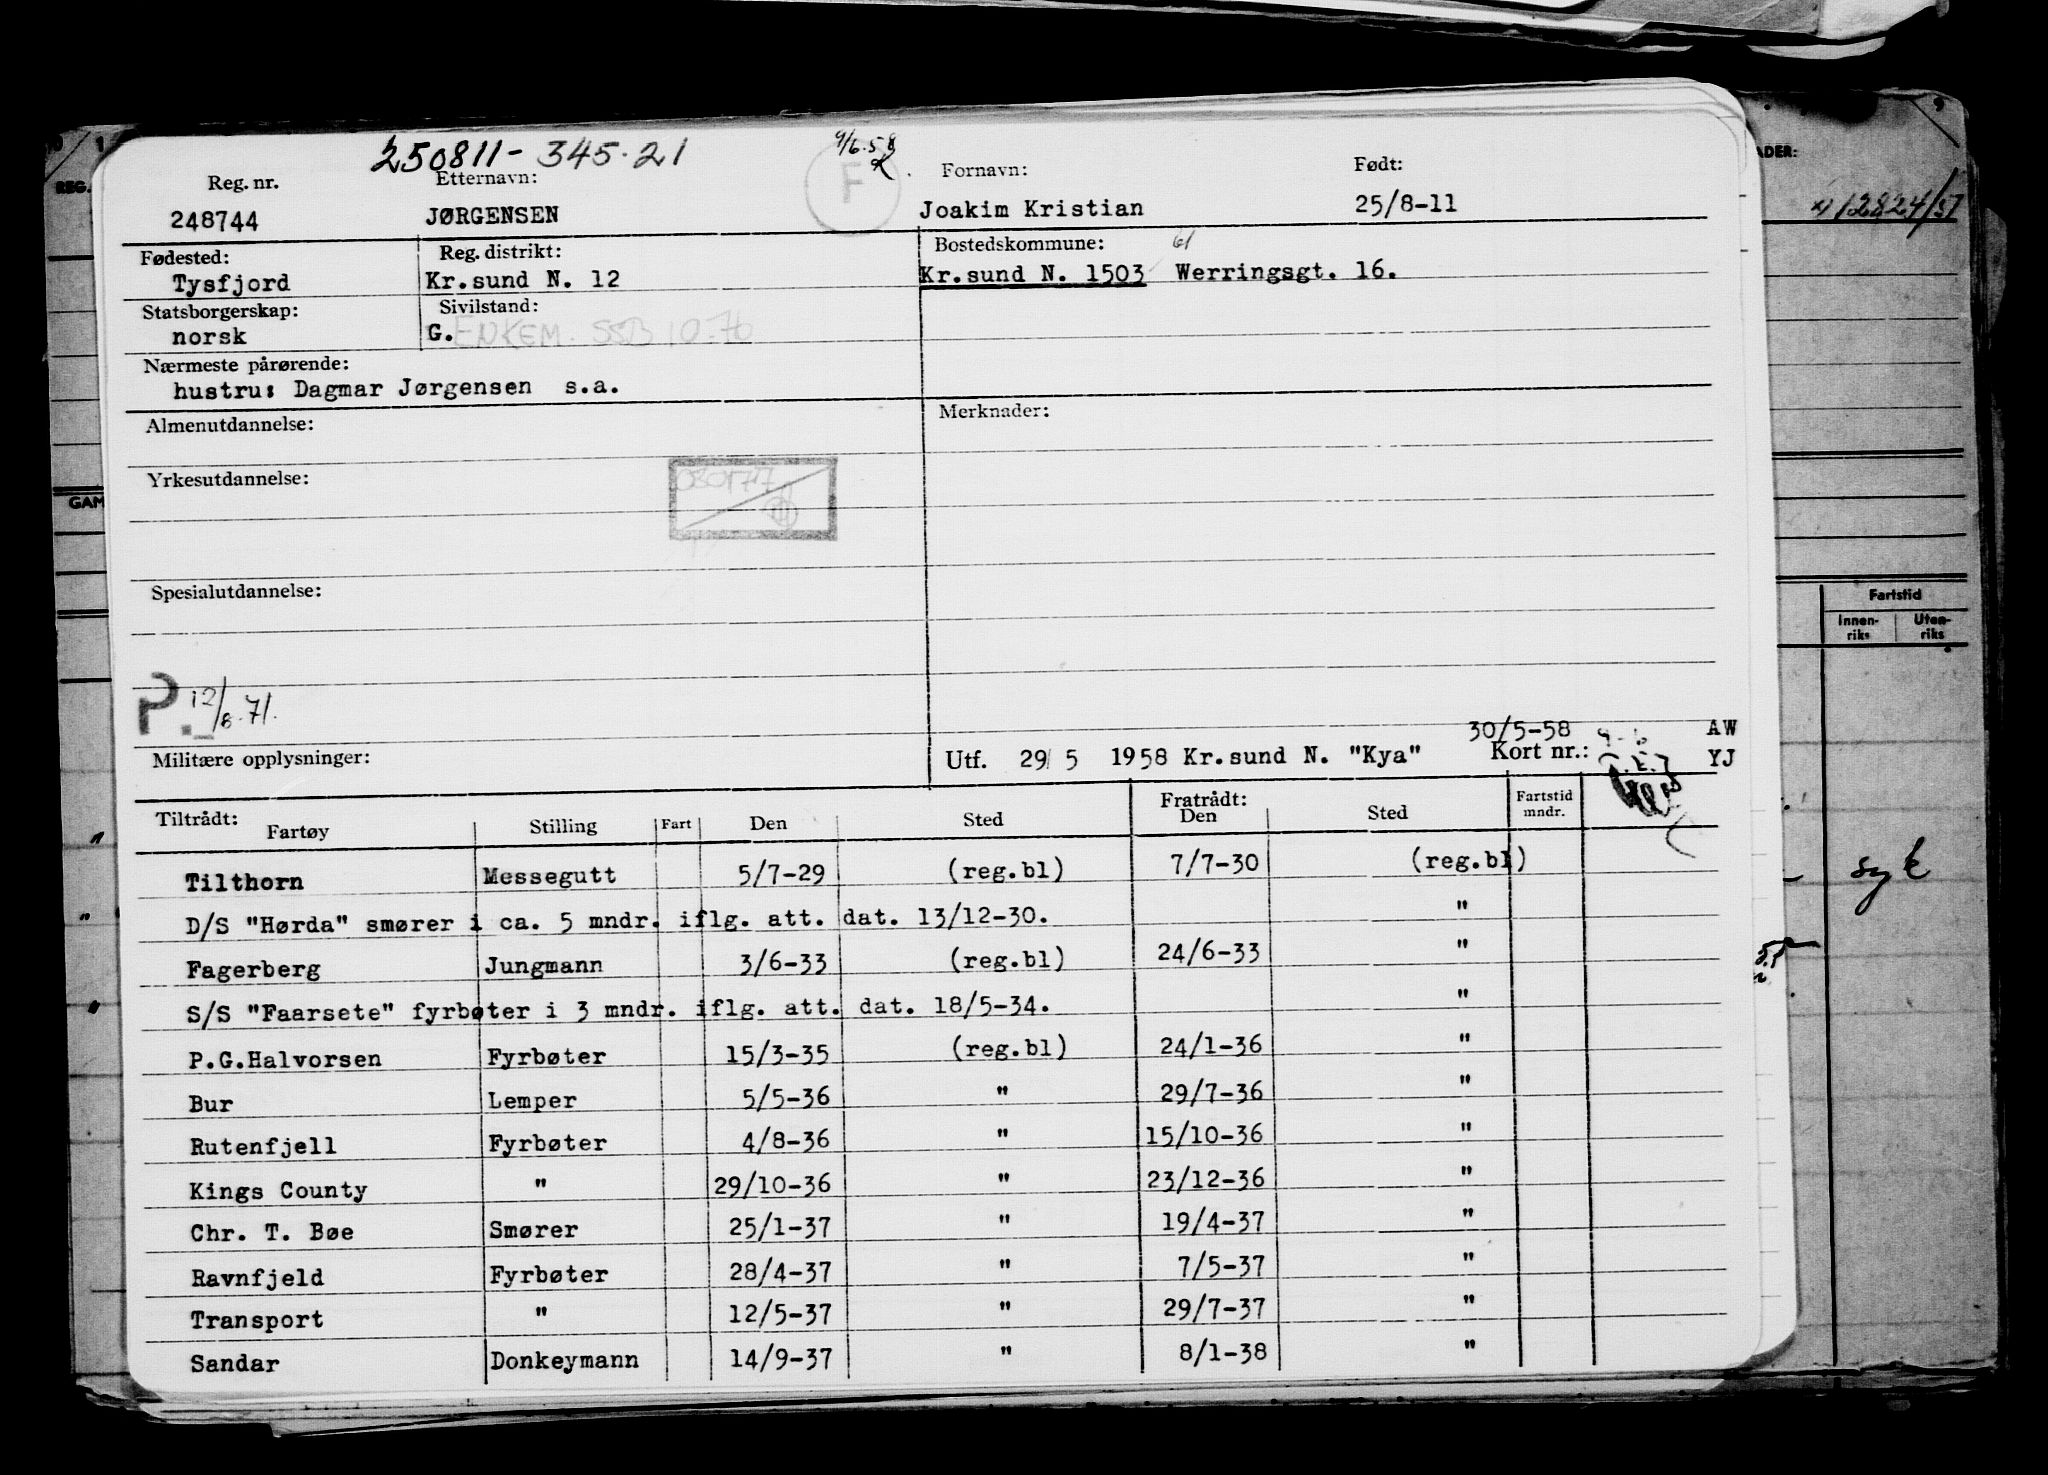 250811-345.21
9/6.58
F
Reg. nr. Etternavn: Fornavn: Født:
248744 JØRGENSEN Joakim Kristian 25/8-11
Fødested: Reg. distrikt: Bostedskommune: 61
Tysfjord Kr.sund N. 12 Kr.sund N. 1503 Werringsgt. 16.
Statsborgerskap: Sivilstand:
norsk G. ENKEM. SSB 10-76
Nærmeste pårørende:
hustru: Dagmar Jørgensen s.a.
Almenutdannelse: Merknader:
Yrkesutdannelse:
Spesialutdannelse:
P. 12/8.71.
30/5-58 AW
Militære opplysninger: Utf. 29/5 1958 Kr.sund N. "Kya" Kort nr.: YJ
Tiltrådt: Fratrådt:
Fartøy Stilling Fart Den Sted Den Sted Fartstid mndr.
Tilthorn Messegutt 5/7-29 (reg.bl) 7/7-30 (reg.bl)
D/S "Hørda" smører i ca. 5 mndr. iflg. att. dat. 13/12-30. "
Fagerberg Jungmann 3/6-33 (reg.bl) 24/6-33 "
S/S "Faarsete" fyrbøter i 3 mndr. iflg. att. dat. 18/5-34. "
P.G.Halvorsen Fyrbøter 15/3-35 (reg.bl) 24/1-36 "
Bur Lemper 5/5-36 " 29/7-36 "
Rutenfjell Fyrbøter 4/8-36 " 15/10-36 "
Kings County " 29/10-36 " 23/12-36 "
Chr. T. Bøe Smører 25/1-37 " 19/4-37 "
Ravnfjeld Fyrbøter 28/4-37 " 7/5-37 "
Transport " 12/5-37 " 29/7-37 "
Sandar Donkeymann 14/9-37 " 8/1-38 "
REG.
GAM
ADER:
12824/57
Fartstid
Innen-riks Uten-riks
syk